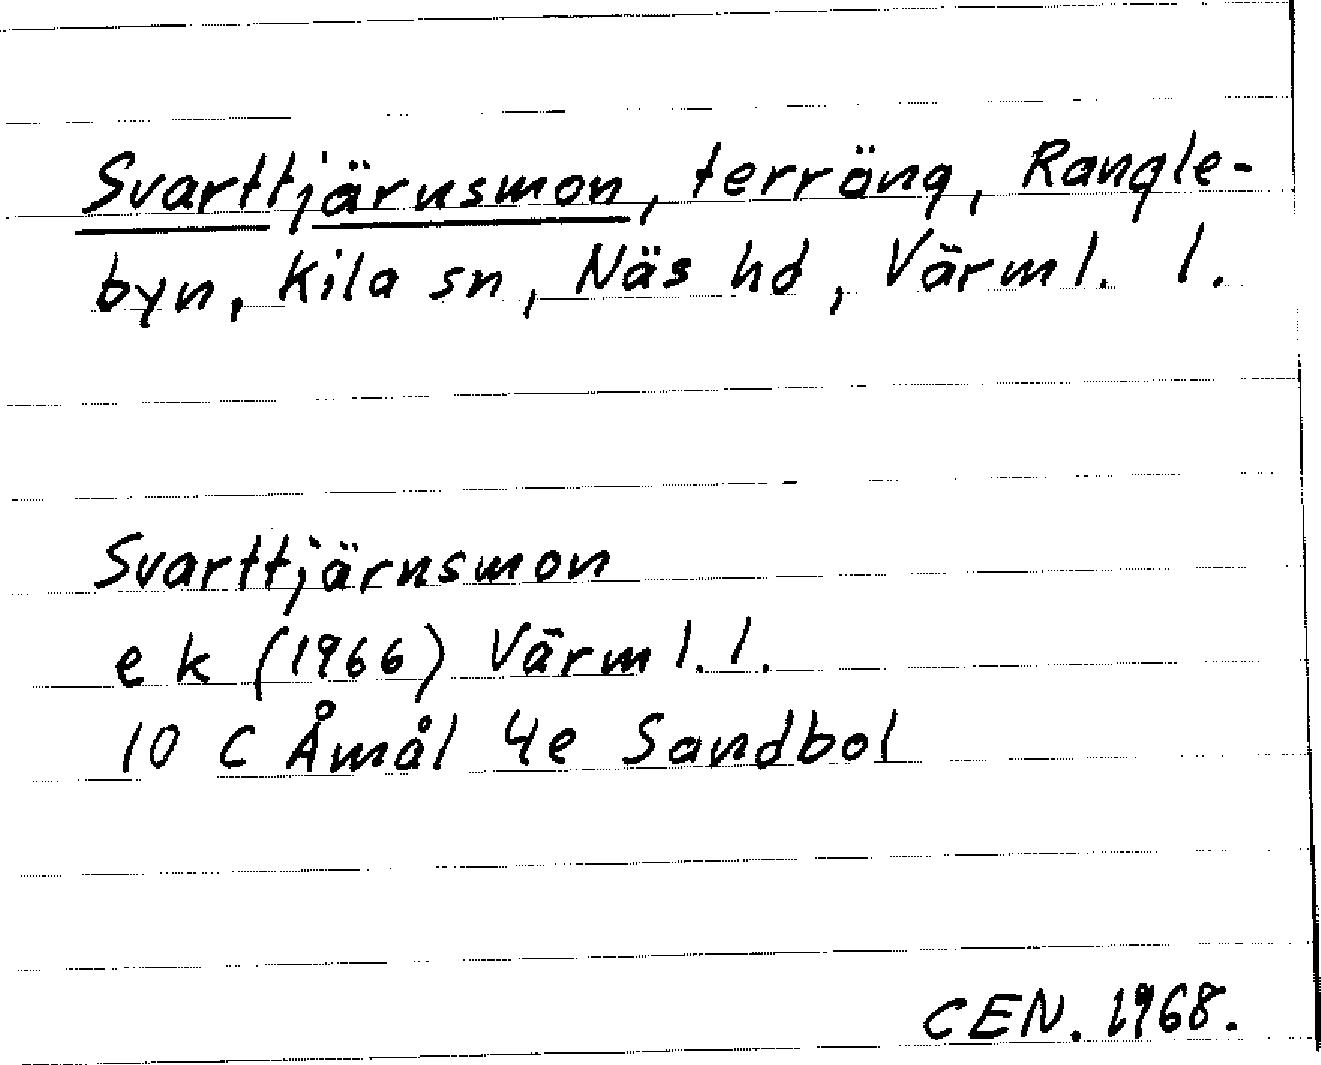 Svarttjärnsmon, terräng, Rangle-
byn, Kila sn, Näs hd, Värml. l.
Svarttjärnsmon
e k (1966) Värml. l.
10 C Åmål 4e Sandbol
CEN. 1968.